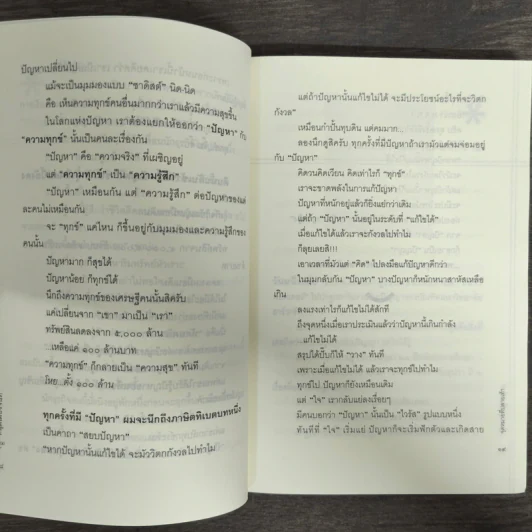 ปัญหาเปลี่ยนไป
แม้จะเป็นมุมมองแบบ "ซาดิสต์" นิด-นิด
คือ เห็นความทุกข์คนอื่นมากกว่าเราแล้วมีความสุขขึ้น
ในโลกแห่งปัญหา เราต้องแยกให้ออกว่า "ปัญหา" กับ
"ความทุกข์" นั้นเป็นคนละเรื่องกัน
"ปัญหา" คือ "ความจริง" ที่เผชิญอยู่
แต่ "ความทุกข์" เป็น "ความรู้สึก"
"ปัญหา" เหมือนกัน แต่ "ความรู้สึก" ต่อปัญหาของแต่
ละคนไม่เหมือนกัน
จะ "ทุกข์" แค่ไหน ก็ขึ้นอยู่กับมุมมองและความรู้สึกของ
คนนั้น
ปัญหามาก ก็สุขได้
ปัญหาน้อย ก็ทุกข์ได้
นึกถึงความทุกข์ของเศรษฐีคนนั้นสิครับ
แค่เปลี่ยนจาก "เขา" มาเป็น "เรา"
ทรัพย์สินลดลงจาก ๕,๐๐๐ ล้าน
...เหลือแค่ ๑๐๐ ล้านบาท
"ความทุกข์" ก็กลายเป็น "ความสุข" ทันที
โหย...ตั้ง ๑๐๐ ล้าน
ทุกครั้งที่มี "ปัญหา" ผมจะนึกถึงภาษิตทิเบตบทหนึ่ง
เป็นคาถา "สยบปัญหา"
"หากปัญหานั้นแก้ไขได้ จะมัววิตกกังวลไปทำไม
แต่ถ้าปัญหานั้นแก้ไขไม่ได้ จะมีประโยชน์อะไรที่จะวิตก
กังวล"
เหมือนกำปั้นทุบดิน แต่คมมาก...
ลองนึกดูสิครับ ทุกครั้งที่มีปัญหาถ้าเรามัวแต่จมจ่อมอยู่
กับ "ปัญหา"
คิดวนคิดเวียน คิดเท่าไรก็ "ทุกข์"
เราจะขาดพลังในการแก้ปัญหา
ปัญหาที่หนักอยู่แล้วก็ยิ่งแย่กว่าเดิม
แต่ถ้า "ปัญหา" นั้นอยู่ในระดับที่ "แก้ไขได้"
เมื่อแก้ไขได้แล้วเราจะกังวลไปทำไม
ก็ลุยเลยสิ!!!
เอาเวลาที่มัวแต่ "คิด" ไปลงมือแก้ปัญหาดีกว่า
ในมุมกลับกัน "ปัญหา" บางปัญหาก็หนักหนาสาหัสเหลือ
เกิน
ลงแรงเท่าไรก็แก้ไขไม่ได้สักที
ถึงจุดหนึ่งเมื่อเราประเมินแล้วว่าปัญหานี้เกินกำลัง
...แก้ไขไม่ได้
สรุปได้ปั๊บก็ให้ "วาง" ทันที
เพราะเมื่อแก้ไขไม่ได้ แล้วเราจะทุกข์ไปทำไม
ทุกข์ไป ปัญหาก็ยังเหมือนเดิม
แต่ "ใจ" เรากลับแย่ลงเรื่อยๆ
มีคนบอกว่า "ปัญหา" นั้นเป็น "ไวรัส" รูปแบบหนึ่ง
ทันทีที่ "ใจ" เริ่มแย่ ปัญหาก็จะเริ่มฟักตัวและเกิดสาย